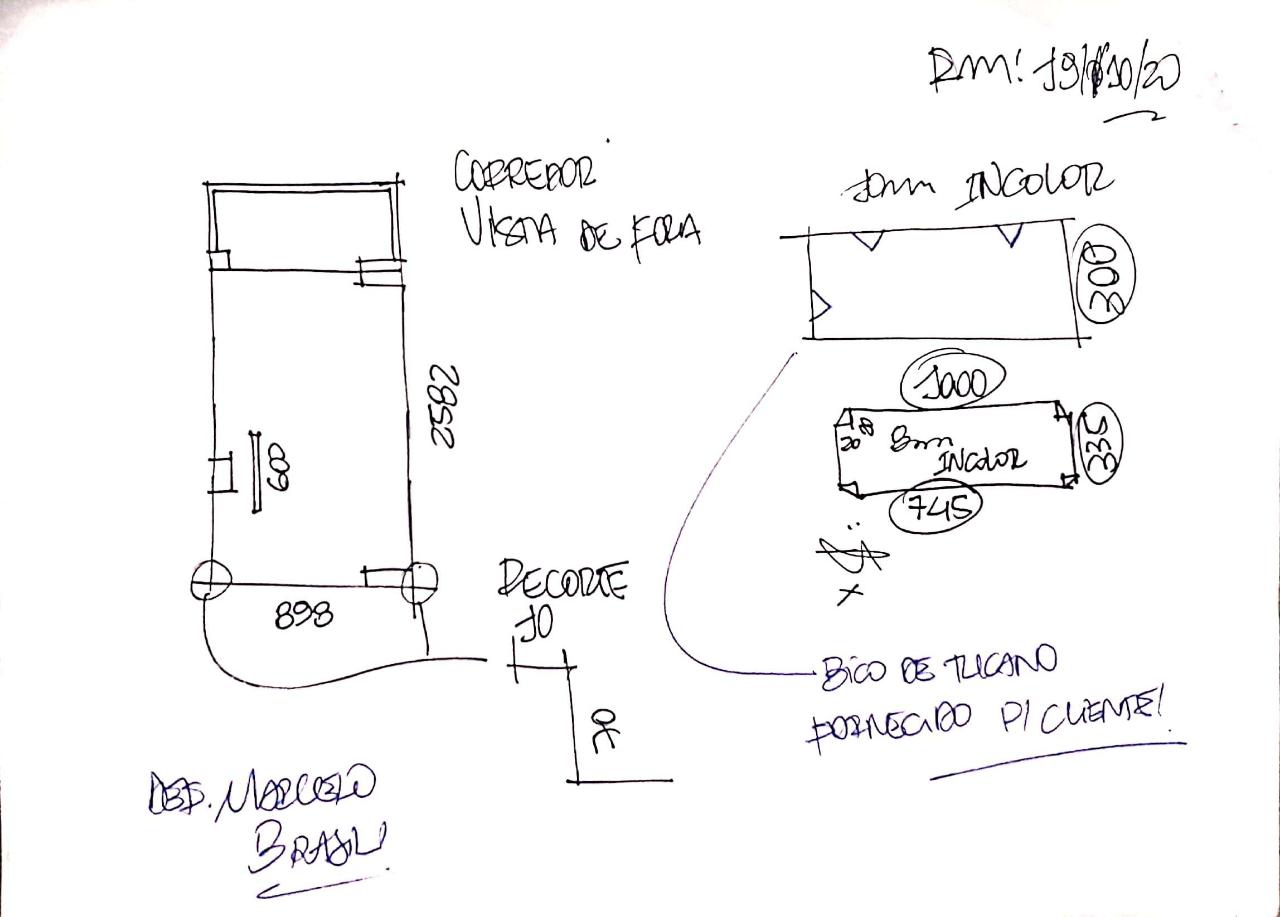 RM! 19/10/20
CORREDOR
VISTA DE FORA
10mm INCOLOR
300
1000
20
8mm
INCOLOR
335
745
2582
600
898
RECORTE
10
BICO DE TUCANO
FORNECIDO P/ CLIENTE!
MARCELO
BRASIL